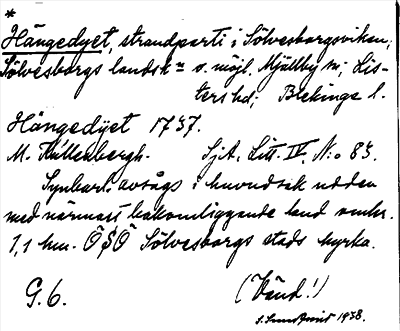 *
Hängedyet, strandparti i Sölvesborgsviken;
Sölvesborgs landsk:n o. möjl. Mjällby sn; Lis-
ters hd; Blekinge l.
Hängedijet 1737.
M. Küllenbergh. Sjöt. Litt. IV. N:o 83.
Synbarl. avsågs i huvudsak udden
med närmast bakomliggande land omkr.
1,1 km. ÖSÖ Sölvesborgs stads kyrka.
G. 6. (Vänd!)
S. Sundqvist 1938.